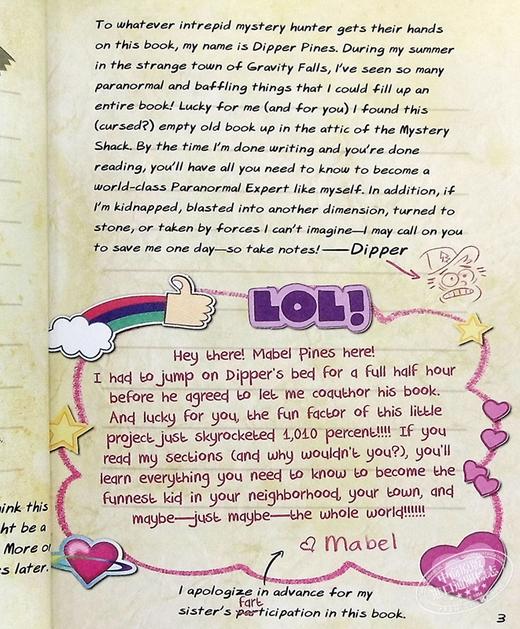 To whatever intrepid mystery hunter gets their hands
on this book, my name is Dipper Pines. During my summer
in the strange town of Gravity Falls, I've seen so many
paranormal and baffling things that I could fill up an
entire book! Lucky for me (and for you) I found this
(cursed?) empty old book up in the attic of the Mystery
Shack. By the time I'm done writing and you're done
reading, you'll have all you need to know to become a
world-class Paranormal Expert like myself. In addition, if
I'm kidnapped, blasted into another dimension, turned to
stone, or taken by forces I can't imagine—I may call on you
to save me one day—so take notes! —Dipper
LOL!
Hey there! Mabel Pines here!
I had to jump on Dipper's bed for a full half hour
before he agreed to let me coauthor his book.
And lucky for you, the fun factor of this little
project just skyrocketed 1,010 percent!!!! If you
read my sections (and why wouldn't you?), you'll
learn everything you need to know to become the
funnest kid in your neighborhood, your town, and
maybe—just maybe—the whole world!!!!!!
Mabel
I apologize in advance for my
fart
sister's participation in this book.
ink this
ht be a
More o
s later.
3